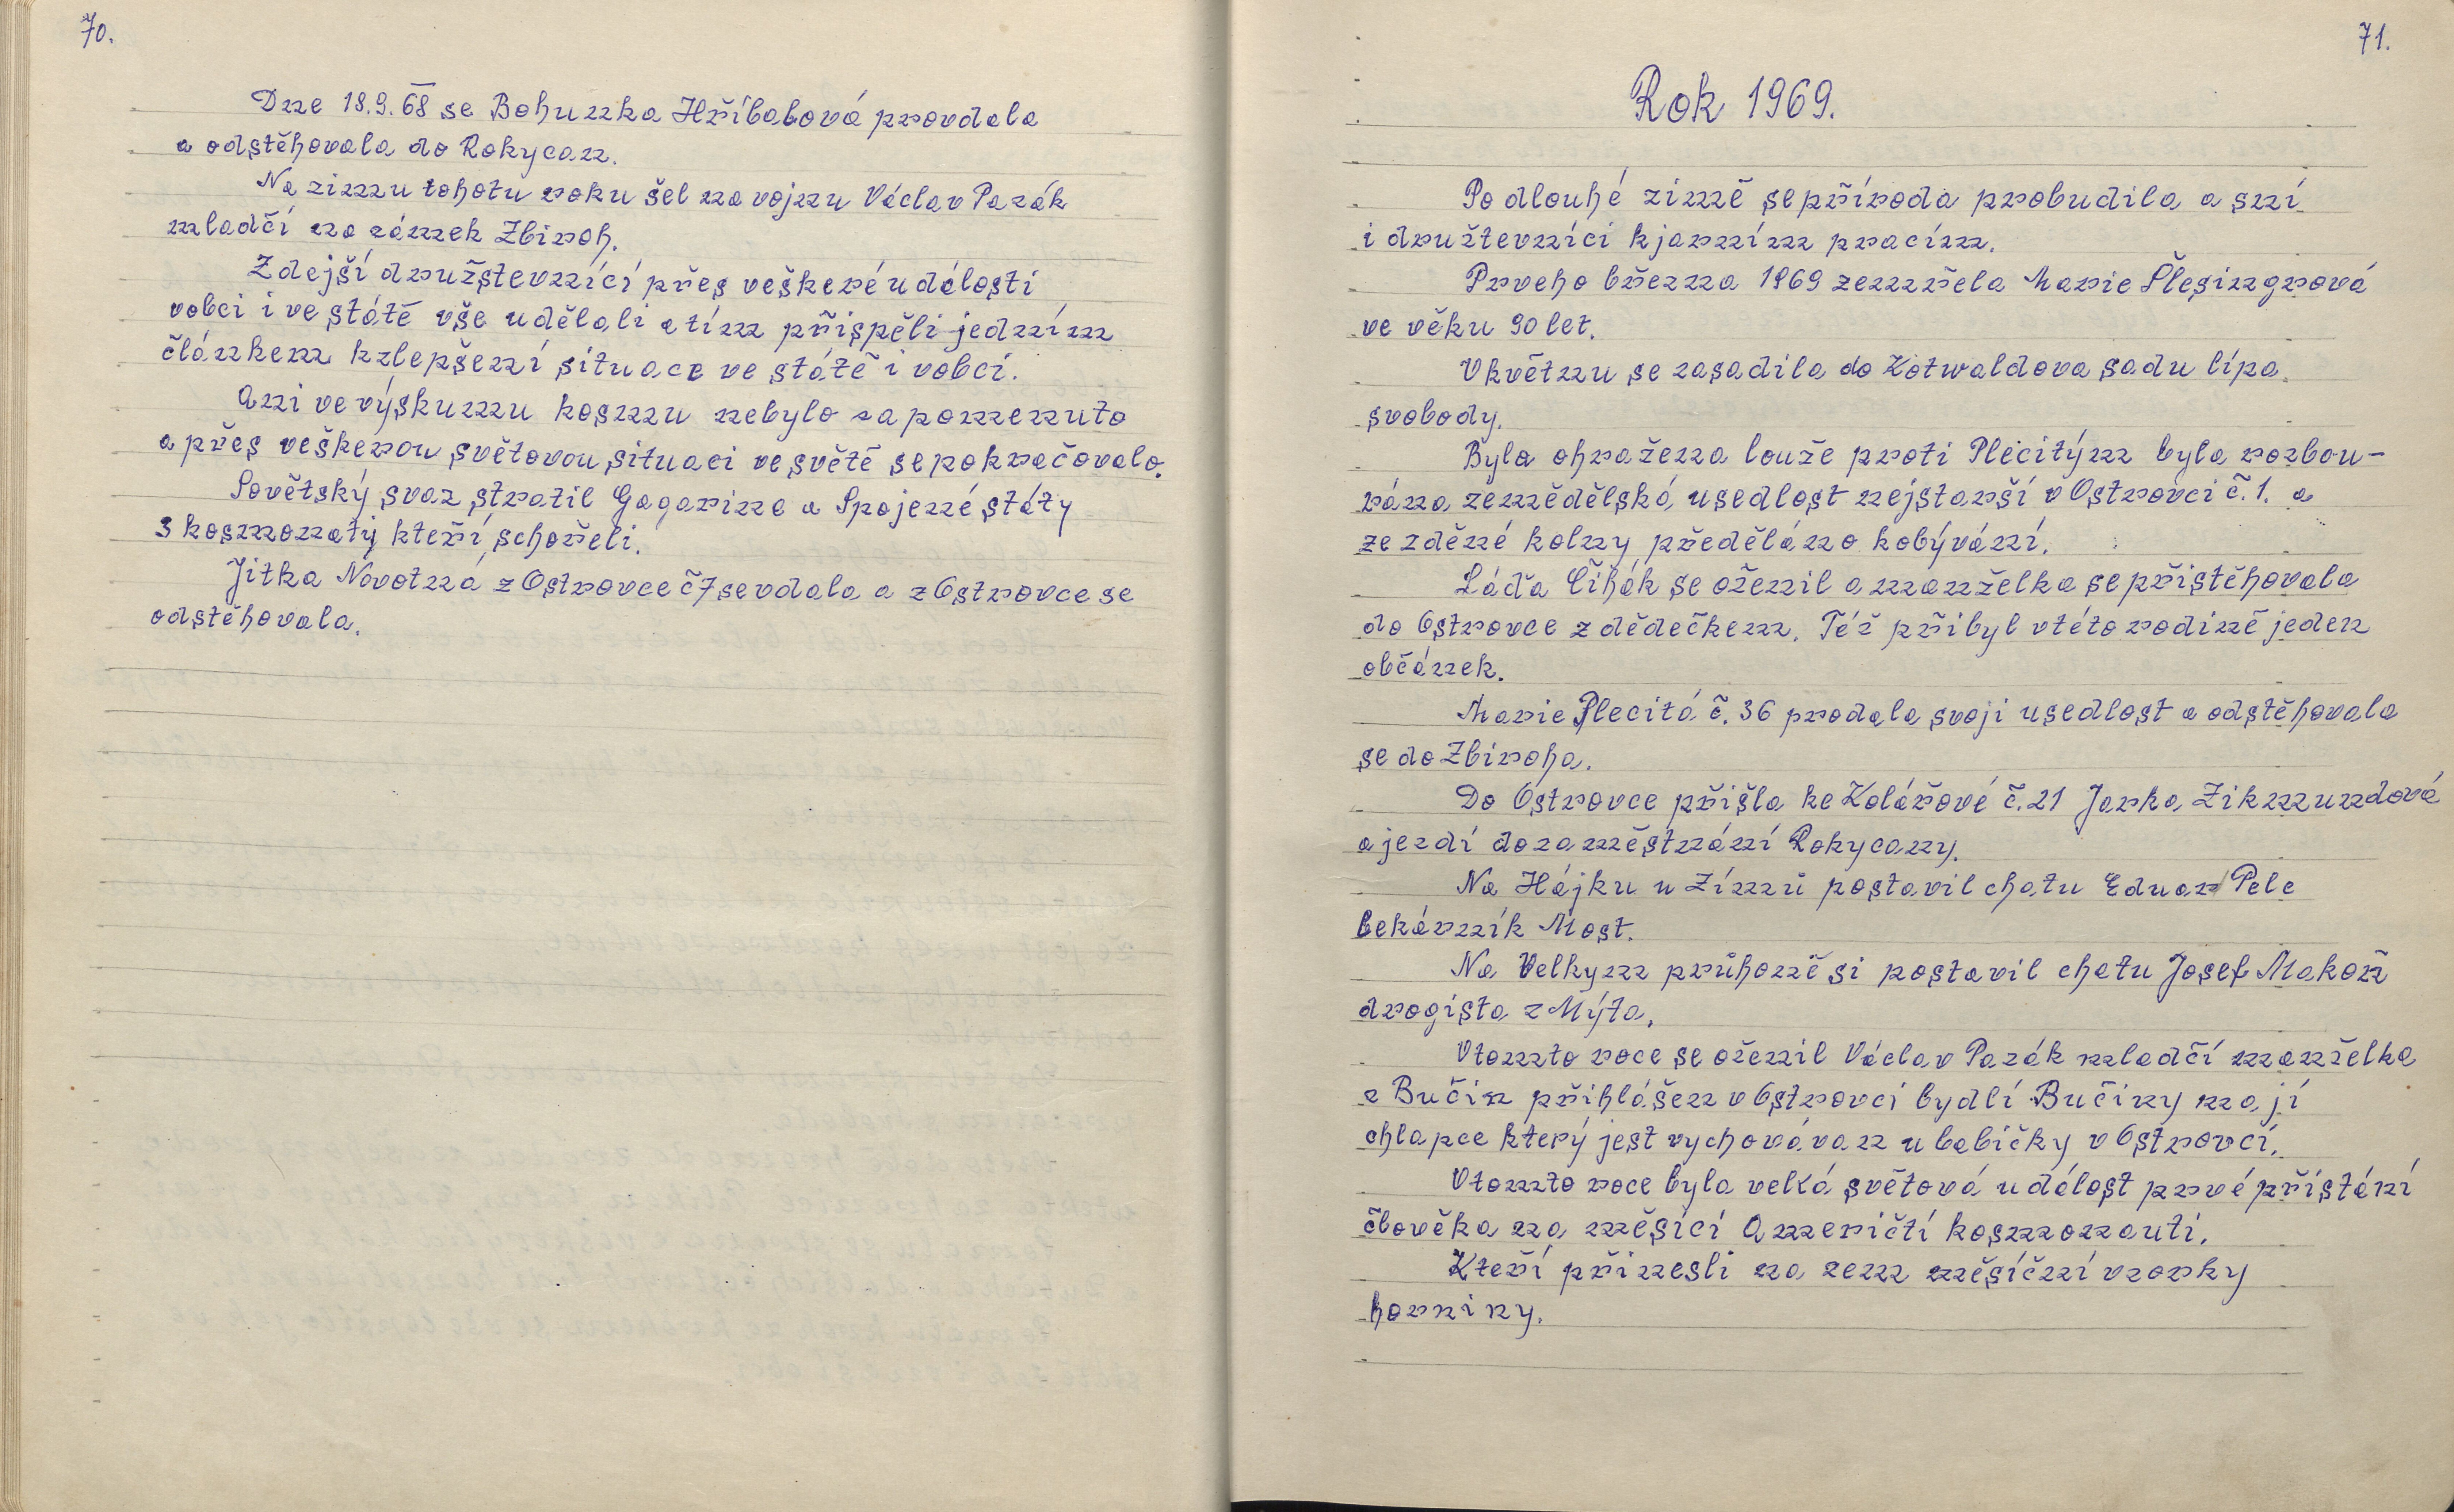 70.
Dne 18.9.68 se Bohunka Hříbalová provdala
a odstěhovala do Rokycan.
Na zimu tohotu roku šel na vojnu Václav Pazák
mladčí na zámek Zbiroh.
Zdejší družstevníci přes veškeré události
vobci i ve státě vše udělali a tím přispěli jedním
článkem kzlepšení situace ve státě i vobci.
Ani ve výskumu kosmu nebylo zapomenuto
a přes veškerou světovou situaci ve světě se pokračovalo.
Sovětský svaz stratil Gagarina a Spojené státy
3 kosmonaty kteří schořeli.
Jitka Novotná z Ostrovce č7 se vdala a z Ostrovce se
odstěhovala.
71.
Rok 1969.
Po dlouhé zimě se příroda probudila a sní
i družtevníci kjarním pracím.
Prveho března 1969 zemřela Marie Šlesingrová
ve věku 90 let.
Vkvětnu se zasadila do Kotwaldova sadu lípa
svobody.
Byla ohražena louže proti Plecitým byla rozbou-
rána zemědělská usedlost nejstarší v Ostrovci č.1. a
ze zděné kolny předěláno kobývání.
Láďa Čihák se oženil a manželka se přistěhovala
do Ostrovce z dědečkem. Též přibyl vtéto rodině jeden
občánek.
Marie Plecitá č. 36 prodala svoji usedlost a odstěhovala
se do Zbiroha.
Do Ostrovce přišla ke Kolářové č.21 Jarka Zikmundová
a jezdí dozaměstnání Rokycany.
Na Hájku u Zímů postavil chatu Eduar Pele
lekárník Most.
Na Velkym průhoně si postavil chatu Josef Makoň
drogista z Mýta.
Vtomto roce se oženil Václav Pazák mladčí manželka
z Bučin přihlášen v Ostrovci bydlí Bučiny mají
chlapce který jest vychováván u babičky v Ostrovci.
Vtomto roce byla velká světová událost prvé přistání
člověka na měsíci Američtí kosmonauti.
Kteří přinesli na zem měsíční vzorky
horniny.